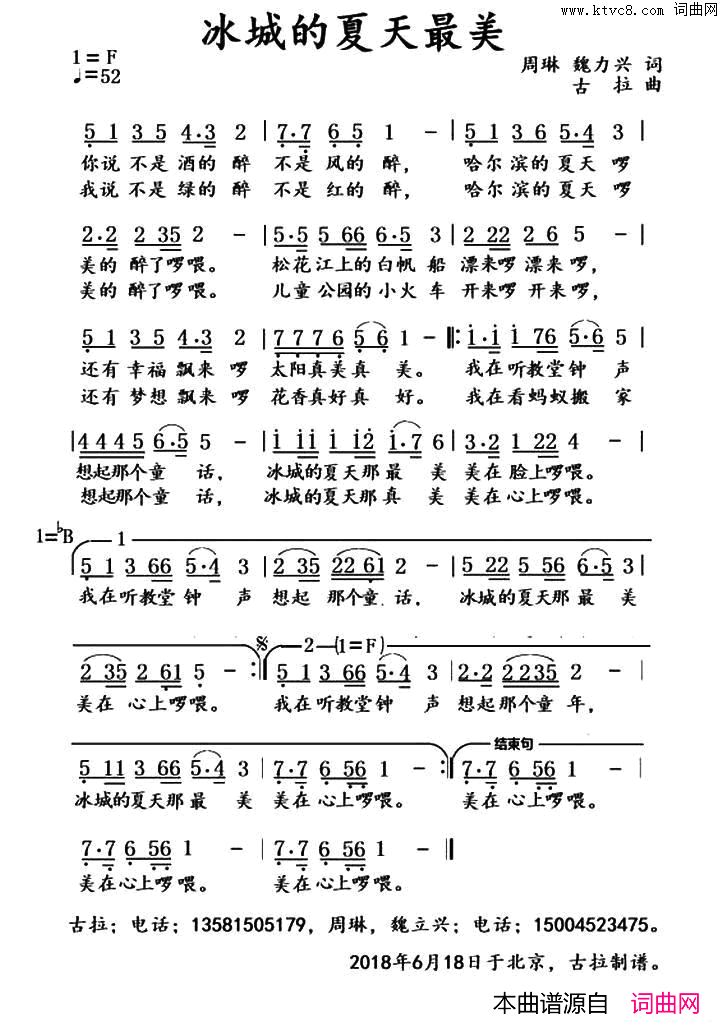 www.ktvc8.com 词曲网
冰城的夏天最美
1=F
♩=52
周琳 魏力兴 词
古 拉 曲
5 1 3 5 4·3 2 | 7·7 6 5 1 - | 5 1 3 6 5·4 3 |
你说 不是 酒的 醉 不是 风的 醉， 哈尔 滨的 夏天 啰
我说 不是 绿的 醉 不是 红的 醉， 哈尔 滨的 夏天 啰
2·2 2 35 2 - | 5·5 5 66 6·5 3 | 2 22 2 6 5 - |
美的 醉了啰喂。 松花 江上的 白帆 船 漂来啰 漂来 啰，
美的 醉了啰喂。 儿童 公园的 小火 车 开来啰 开来 啰，
5 1 3 5 4·3 2 | 7 7 7 6 5 6 1 - ‖: i·i i 76 5·6 5 |
还有 幸福 飘来 啰 太阳真美真 美。 我在 听教堂 钟 声
还有 梦想 飘来 啰 花香真好真 好。 我在 看蚂蚁 搬 家
| 4 4 4 5 6·5 5 - | i ii i i2 i·7 6 | 3·2 1 22 4 - |
想起那个童 话， 冰城的夏天那 最 美 美在 脸上啰喂。
想起那个童 话， 冰城的夏天那 真 美 美在 心上啰喂。
1=♭B 1
5 1 3 66 5·4 3 | 2 35 22 61 2 - | 5 22 5 56 6·5 3 |
我在 听教堂 钟 声 想起 那个童 话， 冰城的夏天那 最 美
𝄋 2 (1=F)
2 35 2 61 5 - :‖ 5 1 3 66 5·4 3 | 2·2 2235 2 - |
美在 心上啰喂。 我在 听教堂钟 声 想起 那个童 年，
结束句
5 11 3 66 5·4 3 | 7·7 6 56 1 - :‖ 7·7 6 56 1 - |
冰城的夏天那 最 美 美在 心上啰喂。 美在 心上啰喂。
7·7 6 56 1 - | 7·7 6 56 1 - ‖
美在心上啰喂。 美在 心上啰喂。
古拉；电话；13581505179，周琳，魏立兴；电话；15004523475。
2018年6月18日于北京，古拉制谱。
本曲谱源自 词曲网